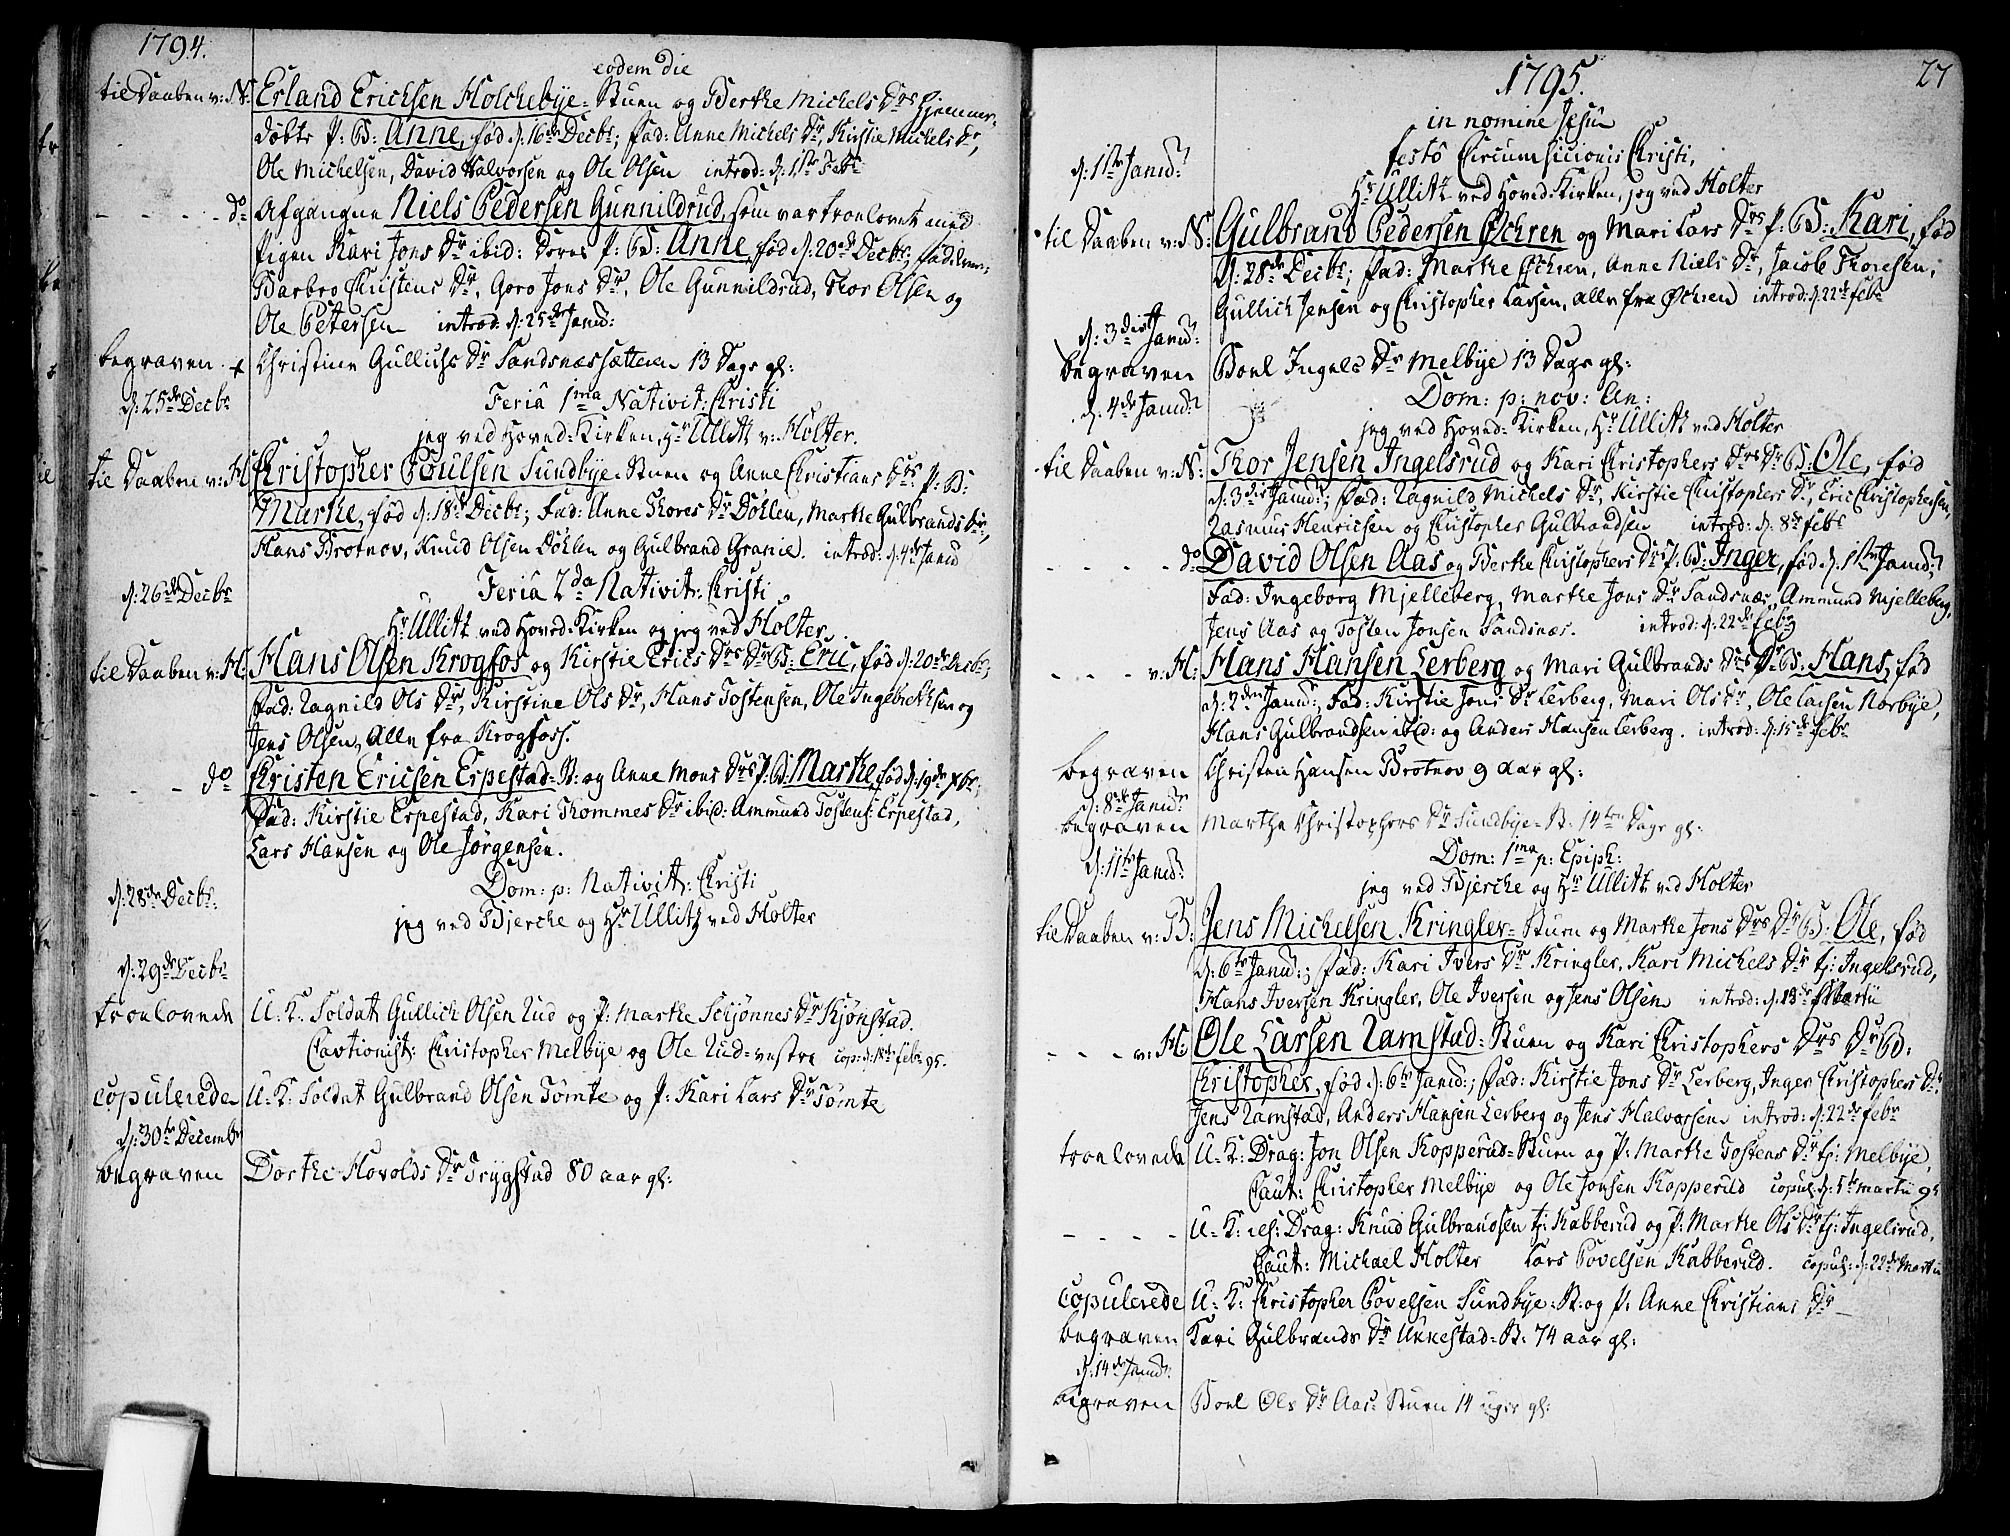 1794.
eodem die
til Daaben v: N: Erland Erichsen Holchebye-Stuen og Berthe Michels Drs hjemme-
døbte P. B: Anne, fød d: 16de Decbr; Fad: Anne Michels Dr, Kirstie Michels Dr,
Ole Michelsen, David Halvorsen og Ole Olsen introd: d: 1ste Febr
- - - - do Afgangne Niels Pedersen Gunnildrud, som var troelovet med
Pigen Kari Jons Dr ibid: deres P: B: Anne, fød d: 20de Decbr;
Barbro Christens Dr, Goro Jons Dr, Ole Gunnildrud, Thor Olsen og
Ole Petersen introd: d: 25de Janu:
begraven + Christine Gullichs Dr Sandsnæssætteren 13 Dage gl:
d: 25de Decbr Feria 1ma Nativit: Christi
jeg ved Hoved-Kirken, Hr Ullitz v: Holter.
til Daaben v: H: Christopher Poulsen Sundbye-Stuen og Anne Christians Drs P: B:
Marthe, fød d: 18de Decbr; Fad: Anne Thores Dr Døhlen, Marthe Gulbrands Dr,
Hans Brotnov, Knud Olsen Døhlen og Gulbrand Granie. introd: d: 4de Janu
d: 26de Decbr Feria 2da Nativit: Christi
Hr Ullitz ved Hoved-Kirken og jeg ved Holter
til Daaben v: H: Hans Olsen Krogfos og Kirstie Erics Drs Dr B: Eric, fød d: 20de Decbr;
Fad: Ragnild Ols Dr, Kirstine Ols Dr, Hans Tostensen, Ole Ingebrethsen og
Jens Olsen, alle fra Krogfoss.
- - - do Christen Ericsen Erpestad-St: og Anne Mons Drs P: B: Marthe, fød d: 19de Xbr;
Fad: Kirstie Erpestad, Kari Thommes Dr ibid: Ammund Tostens: Erpestad,
Lars Hansen og Ole Jørgensen.
d: 28de Decbr: Dom: p: Nativit: Christi
jeg ved Bjerche og Hr Ullitz ved Holter
d: 29de Decbr
troelovede U: K: Soldat Gullich Olsen Rud og P: Marthe Schjønnes Dr Kjønstad.
Cavtionist: Christopher Melbye og Ole Rud-vestre cop: d: 18de febr 95.
copulerede U: K: Soldat Gulbrand Olsen Tømte og P: Kari Lars Dr Tømte
d: 30te Decembr
begraven Dorthe Hovolds Dr Trygstad 80 aar gl:
27
1795.
in nomine Jesu
d: 1ste Janu: festo Circumsicionis Christi,
Hr Ullitz ved Hoved-Kirken, jeg ved Holter
til Daaben v: N: Gulbrand Pedersen Øchren og Mari Lars Drs P: B: Kari, fød
d: 28de Decbr; Fad: Marthe Øchren, Anne Niels Dr, Jacob Thoresen,
Gullich Jensen og Christopher Larsen, alle fra Øchren introd: d: 22de febr
d: 3die Janu:
begraven Boel Ingels Dr Melbye 13 Dage gl:
d: 4de Janu: Dom: p: nov: An:
jeg ved Hoved-Kirken, Hr Ullitz ved Holter
til Daaben v: N: Thor Jensen Ingelsrud og Kari Christophers Drs Dr B: Ole, fød
d: 3die Janu:; Fad: Ragnild Michels Dr, Kirstie Christophers Dr, Eric Christophersen,
Rasmus Henricsen og Christopher Gulbrandsen introd: d: 8de febr
- - - - do David Olsen Aas og Berthe Christophers Drs P: B: Inger, fød d: 1ste Janu:
Fad: Ingeborg Mjelleberg, Marthe Jons Dr Sandsnæs, Ammund Mjelleberg,
Jens Aas og Tosten Jonsen Sandsnæs. introd: d: 22de feb
- - - v: H: Hans Hansen Lerberg og Mari Gulbrands Drs Dr B: Hans, fød
d: 2den Janu:, Fad: Kirstie Jons Dr Lerberg, Mari Ols Dr, Ole Larsen Norbye,
Hans Gulbrandsen ibid: og Anders Hansen Lerberg. introd: d: 15de febr
begraven Christen Hansen Brotnov 9 aar gl:
d: 8de Janu:
begraven Marthe Christophers Dr Sundbye-St: 14ten Dage gl:
d: 11te Janu: Dom: 1ma p: Epiph:
jeg ved Bjerche og Hr Ullitz ved Holter
til Daaben v: B: Jens Michelsen Kringler-Stuen og Marthe Jons Drs Dr B: Ole, fød
d: 6te Janu:; Fad: Kari Ivers Dr Kringler, Kari Michels Dr tj: Ingelsrud,
Hans Iversen Kringler, Ole Iversen og Jens Olsen introd: d: Martii
- - - v: H: Ole Larsen Ramstad-Stuen og Kari Christophers Drs Dr B:
Christopher, fød d: 6te Janu:; Fad: Kirstie Jons Dr Lerberg, Inger Christophers Dr,
Jens Ramstad, Anders Hansen Lerberg og Jens Halvorsen introd: d: 22de febr
troelovede U: K: Drag: Jon Olsen Kopperud-Stuen og P: Marthe Tostens Dr tj: Melbye,
Caut: Christopher Melbye og Ole Jonsen Kopperud copul: d: martii 95
- - - - U: K: res: Drag: Knud Gulbrandsen tj: Kabberud og P: Marthe Ols Dr tj: Ingelsrud,
Caut: Michael Holter Lars Povelsen Kabberud. copul: d: 22de Martii
copulerede U: K: Christopher Povelsen Sundbye-St: og P: Anne Christians Dr
begraven Kari Gulbrands Dr Ukkestad-St: 74 aar gl:
d: 14de Janu:
begraven Boel Ols Dr Aas-Stuen 14 uger gl: